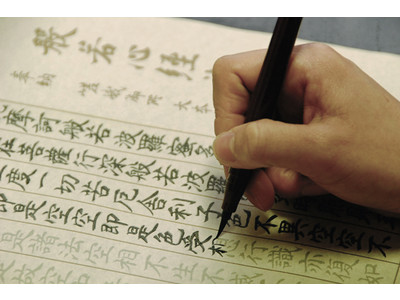 般若心経
奉納
摩訶般若波羅蜜多
在菩薩行深般若波羅
度一切苦厄舍利子色不異空空不
即是空空即是色受想行識亦復如
是諸法空相不生不
故空